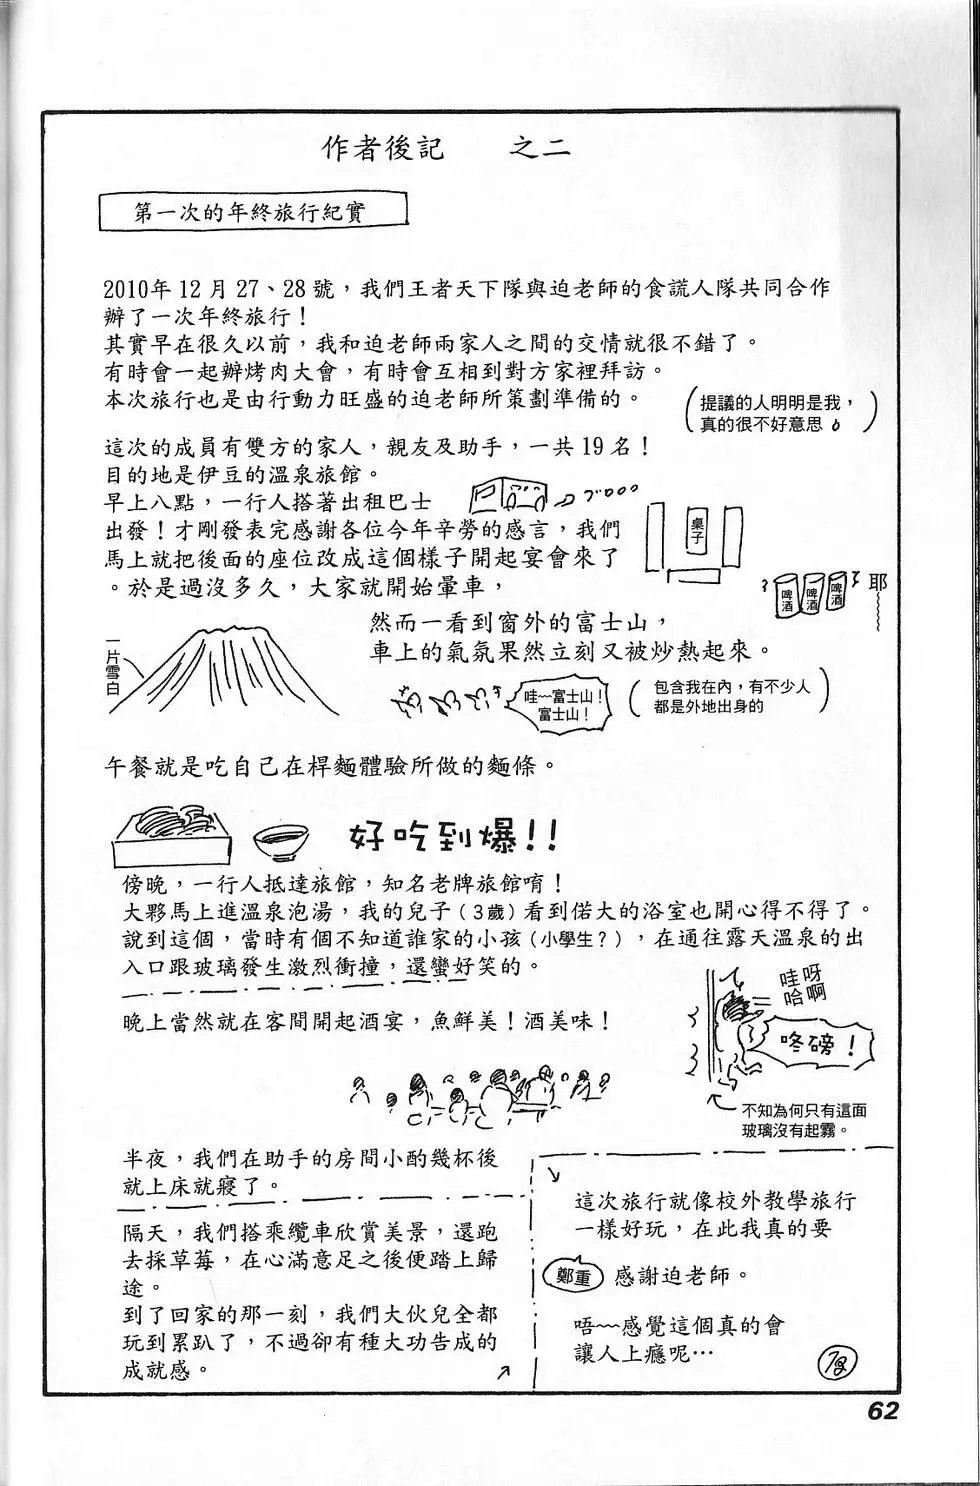 作者後記　之二
第一次的年終旅行紀實
2010年12月27、28號，我們王者天下隊與迫老師的食謊人隊共同合作
辦了一次年終旅行！
其實早在很久以前，我和迫老師兩家人之間的交情就很不錯了。
有時會一起辦烤肉大會，有時會互相到對方家裡拜訪。
本次旅行也是由行動力旺盛的迫老師所策劃準備的。
（提議的人明明是我，
真的很不好意思）
這次的成員有雙方的家人，親友及助手，一共19名！
目的地是伊豆的溫泉旅館。
早上八點，一行人搭著出租巴士
ブ
出發！才剛發表完感謝各位今年辛勞的感言，我們
馬上就把後面的座位改成這個樣子開起宴會來了
。於是過沒多久，大家就開始暈車，
桌子
啤酒
啤酒
啤酒
耶
然而一看到窗外的富士山，
車上的氣氛果然立刻又被炒熱起來。
一片雪白
哇~~富士山！
富士山！
（包含我在內，有不少人
都是外地出身的）
午餐就是吃自己在桿麵體驗所做的麵條。
好吃到爆！！
傍晚，一行人抵達旅館，知名老牌旅館唷！
大夥馬上進溫泉泡湯，我的兒子（3歲）看到偌大的浴室也開心得不得了。
說到這個，當時有個不知道誰家的小孩（小學生？），在通往露天溫泉的出
入口跟玻璃發生激烈衝撞，還蠻好笑的。
哇呀
哈啊
咚磅！
不知為何只有這面
玻璃沒有起霧。
晚上當然就在客間開起酒宴，魚鮮美！酒美味！
半夜，我們在助手的房間小酌幾杯後
就上床就寢了。
隔天，我們搭乘纜車欣賞美景，還跑
去採草莓，在心滿意足之後便踏上歸
途。
到了回家的那一刻，我們大伙兒全都
玩到累趴了，不過卻有種大功告成的
成就感。
這次旅行就像校外教學旅行
一樣好玩，在此我真的要
鄭重 感謝迫老師。
唔~~感覺這個真的會
讓人上癮呢…
62